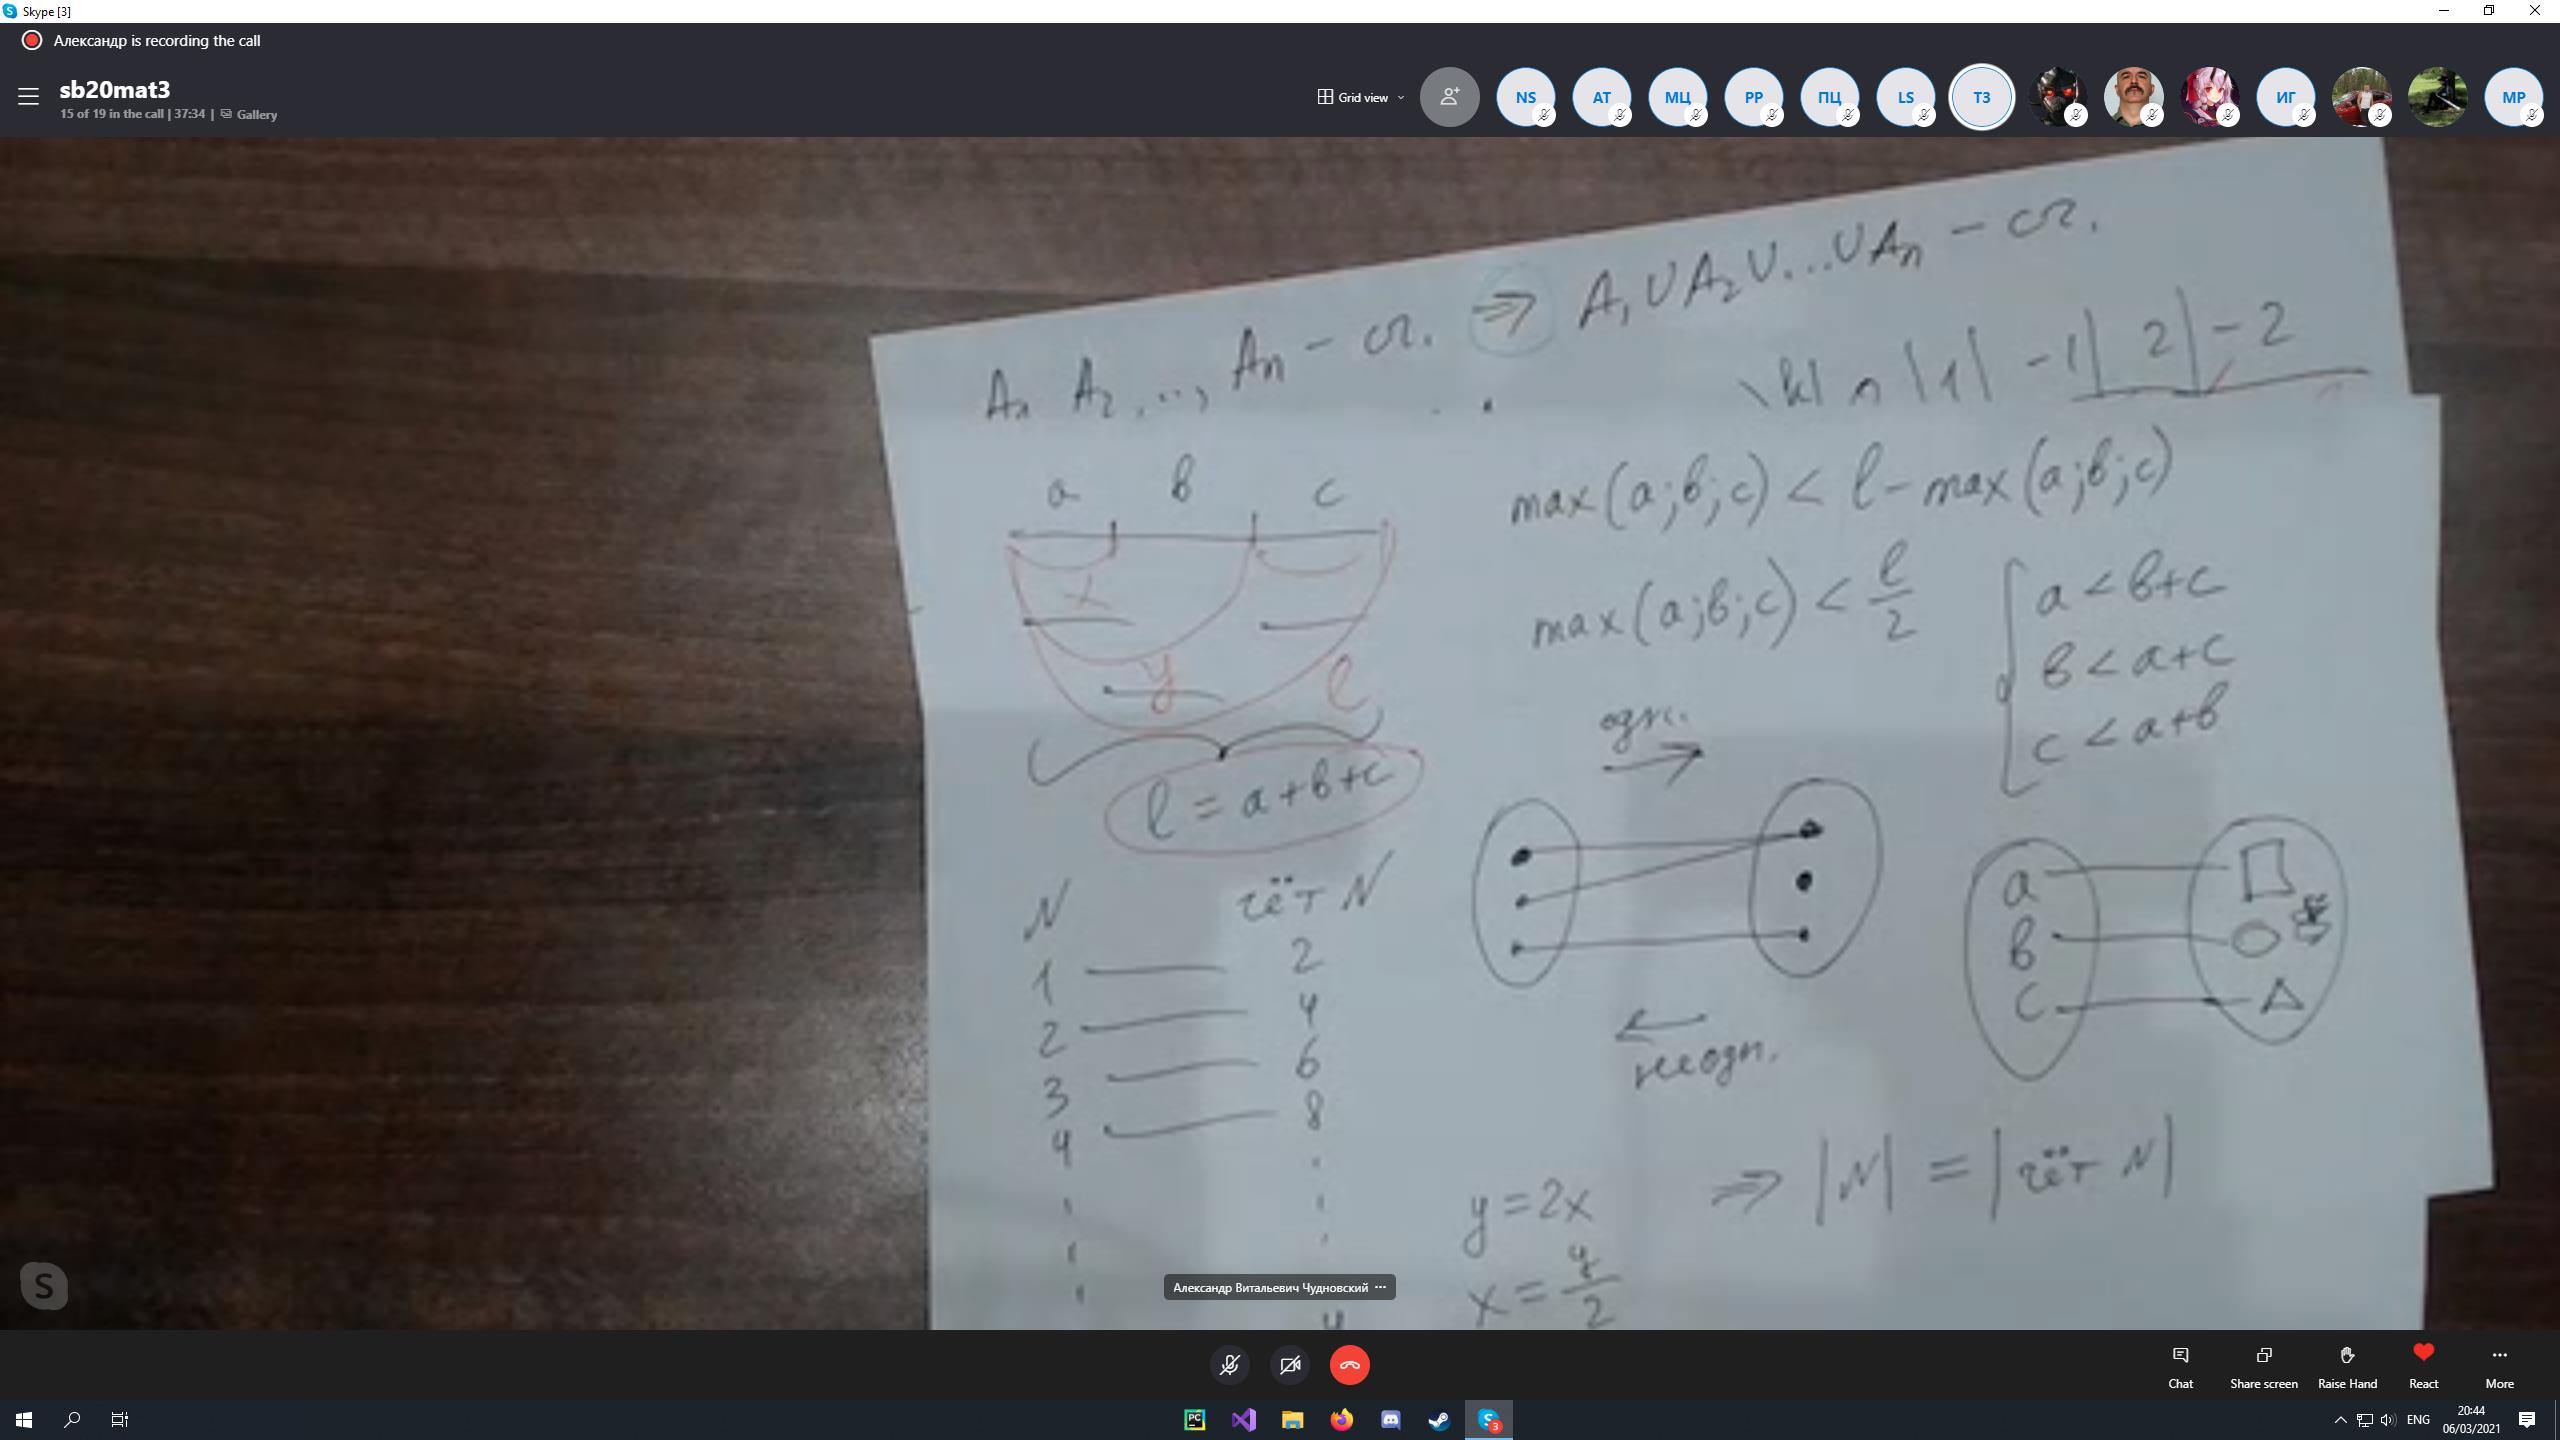 Skype [3]
Александр is recording the call
sb20mat3
15 of 19 in the call | 37:34 | Gallery
Grid view
NS
AT
МЦ
PP
ПЦ
LS
ТЗ
ИГ
MP
A₁ A₂, ..., Aₙ - сч. ⇒ A₁ ∪ A₂ ∪ ... ∪ Aₙ - сч.
n | 1 | -1 | 2 | -2
a b c
max(a; b; c) < l - max(a; b; c)
x
max(a; b; c) < l/2
y
l
l = a + b + c
a < b + c
b < a + c
c < a + b
N чёт N
1 — 2
2 — 4
3 — 6
4 — 8
одн.
→
←
неодн.
a
b
c
y = 2x
x = y/2
⇒ |N| = |чёт N|
Александр Витальевич Чудновский
Chat
Share screen
Raise Hand
React
More
PC
3
ENG
20:44
06/03/2021